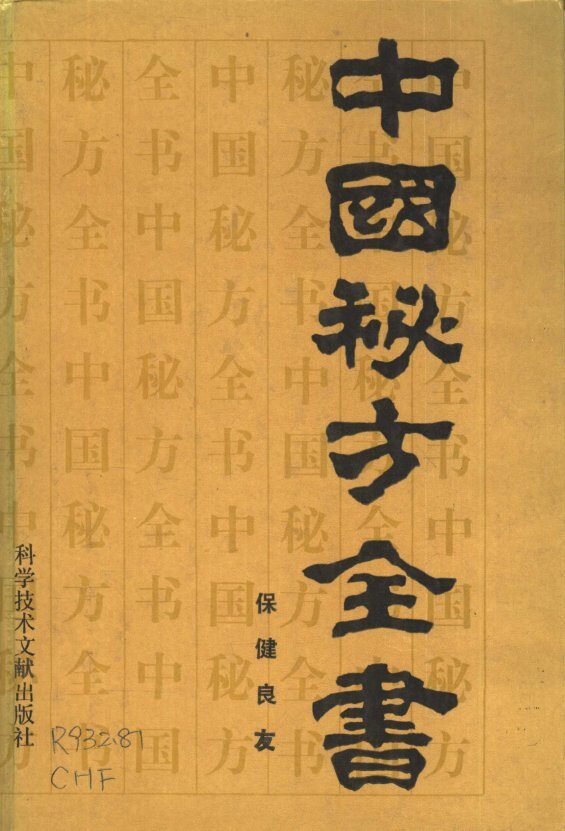 中國秘方全書
保健良友
科学技术文献出版社
R932.87
CHF